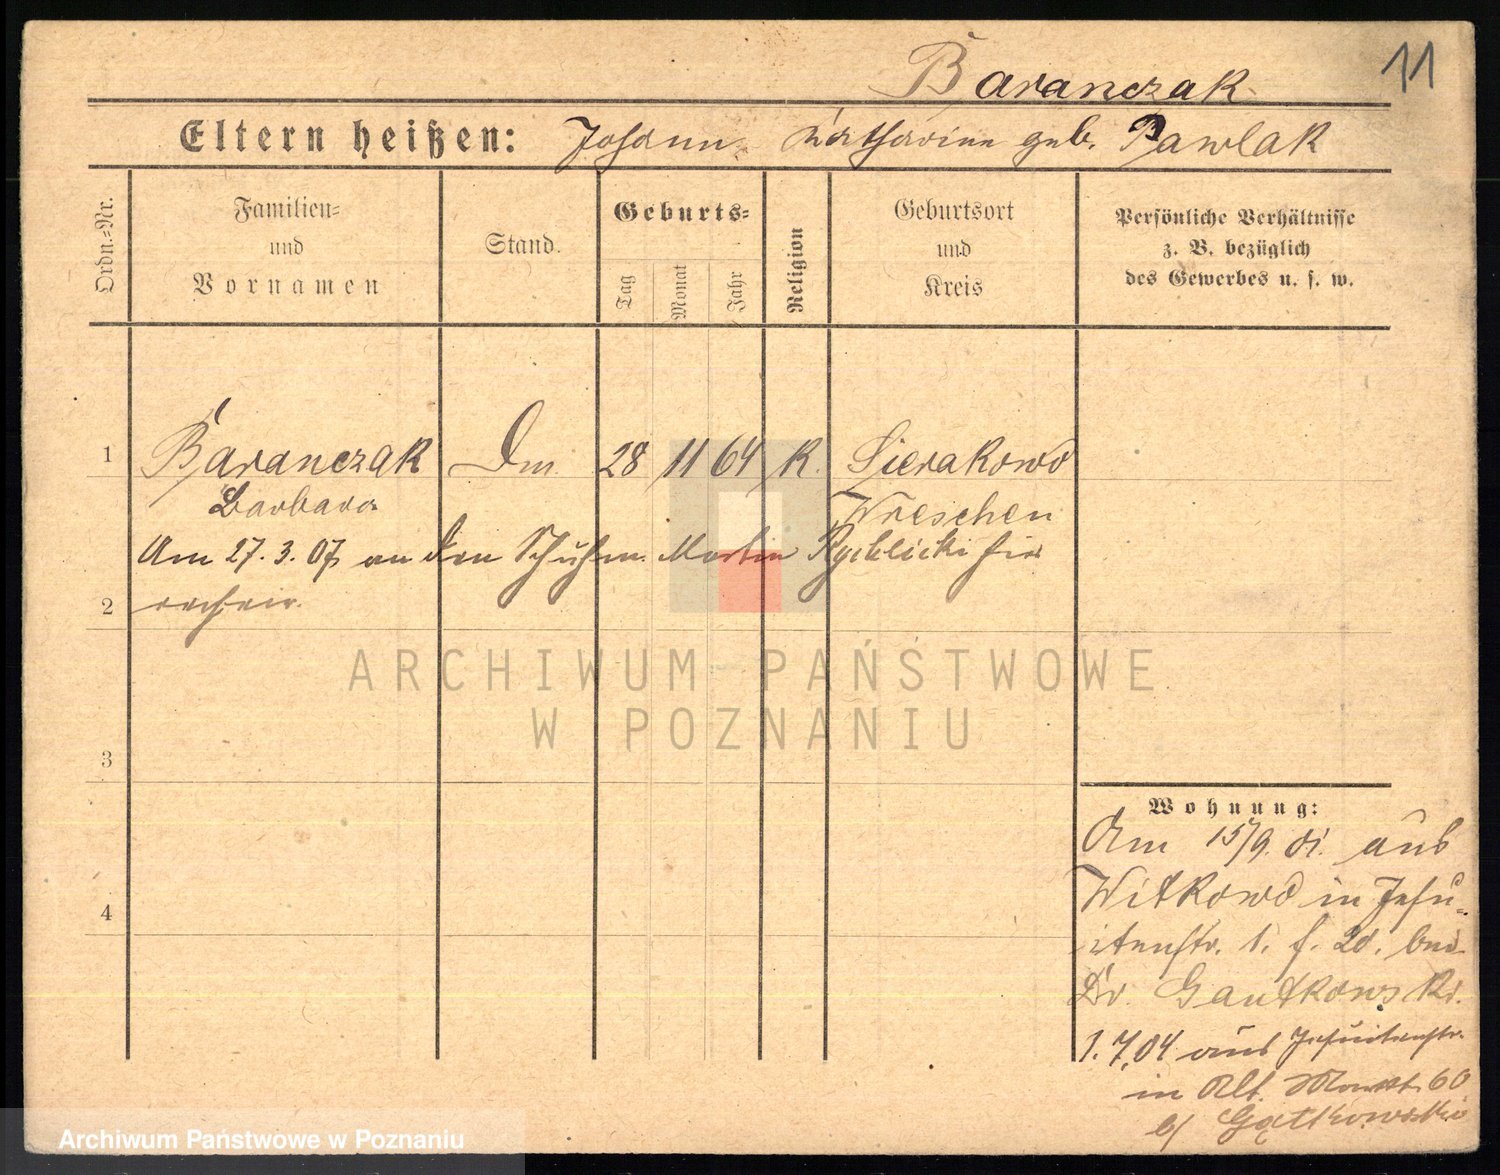 11
Baranczak
Eltern heißen: Johann Katharine geb. Pawlak
Ordn.-Nr.
Familien-
und
Vornamen
Stand.
Geburts-
Tag
Monat
Jahr
Religion
Geburtsort
und
Kreis
Persönliche Verhältnisse
z. B. bezüglich
des Gewerbes u. s. w.
1 Baranczak 28 11 64 K. Sierakowo
Barbara Wreschen
Am 27. 3. 07 an den Schuhm. Martin Rychlicki hier
2
3
4
Wohnung:
Am 15/9. 01. aus
Witkowo in Jesu-
itenstr. 1. bei
Dr. Gantkowski.
1. 7. 04 aus Jesuitenstr.
in Alt. Markt 60
b/ Gątkowski
ARCHIWUM PAŃSTWOWE
W POZNANIU
Archiwum Państwowe w Poznaniu